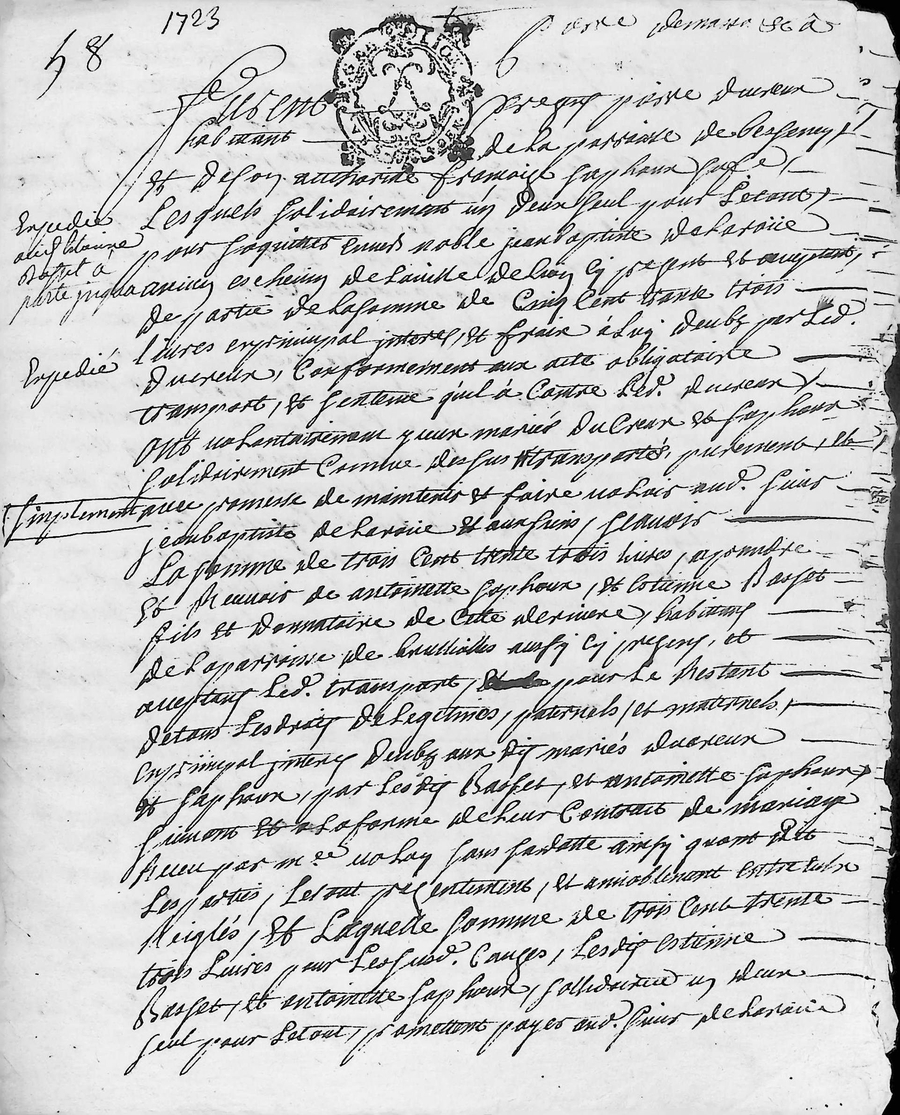 1723
58
Furent presens pierre ducreux
habitant de la parroisse de bessenay
et de son authorité françoise saphoux sa fe,
Lesquels solidairement un deux seul pour Letout,
pour saquitter envers noble jean baptiste delaroüe
ancien eschevin de Laville de lion cy present et acceptant,
de partie de La somme de Cinq Cent trante trois
livres enprincipal interes, et frais à Luy deubz par Led.
ducreux, Conformement aux acte obligatoire
transport, et sentence quil à Contre Led. ducreux,
Ont volontairement yceux mariés duCreux et saphoux
solidairement Comme dessus transportés, purement, et
simplement avec promesse de maintenir et faire valoir aud. sieur
jeanbaptiste delaroüe et aux siens, scavoir
La somme de trois Cent trente trois livres, aprendre
et Recevoir de antoinette saphoux, et Estienne Basset
fils et donnataire de Cette derniere, habitans
de la parroisse de brussiolles aussy cy presens, et
acceptans Led. transport, pour Le Restant
detous Lesdroits de Legitimes, paternels, et maternels,
enprincipal interes deubz aux dits mariés ducreux
et saphoux, par Lesdits Basset, et antoinette saphoux,
suivant et a La forme de Leur Contrat de mariage
Receu par me. sans ainsy quont dit
Les parties, Letout presentement, et amiablement entre eulx
Reiglés, et Laquelle somme de trois Cent trente
trois Livres pour Les susd. Causes, Lesdits estienne
Basset, et antoinette saphoux, sollidairement un deux
seul pour Letout, promettent payer aud. sieur delaroüe
Expedié
aud. Estienne
Basset à
Expedié